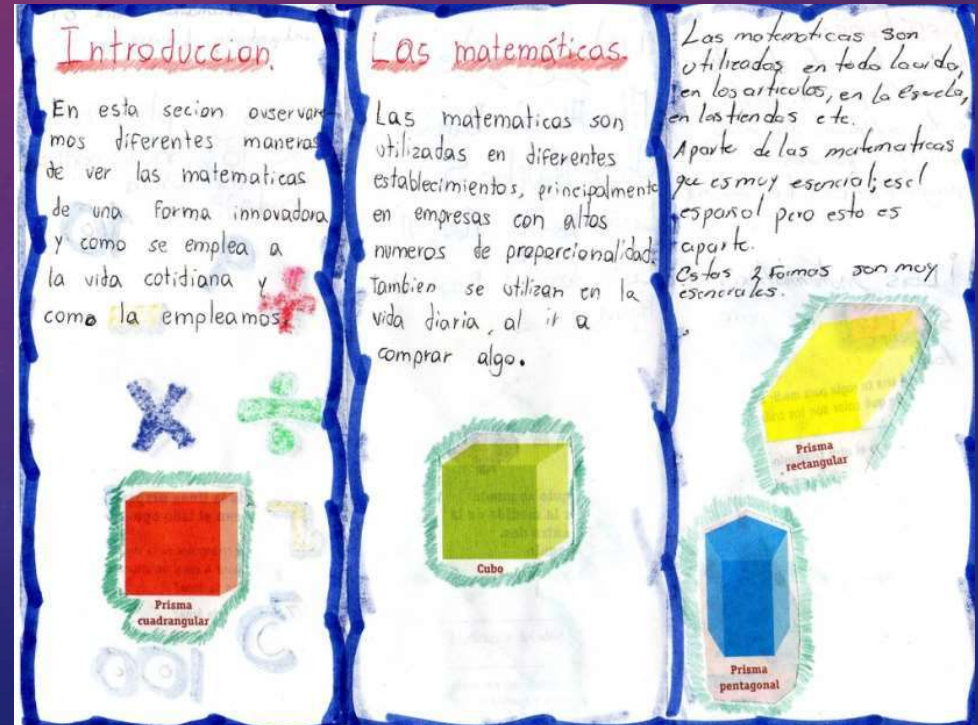 Introduccion.
En esta secion ouservare
mos diferentes maneras
de ver las matematicas
de una forma innovadora
y como se emplea a
la vida cotidiana y
como la empleamos
+
x ÷
Prisma
cuadrangular
100
Las matemáticas.
Las matematicas son
utilizadas en diferentes
establecimientos, principalmente
en empresas con altos
numeros de proporcionalidad.
Tambien se utilizan en la
vida diaria, al ir a
comprar algo.
Cubo
Las matematicas son
utilizadas en toda la vida,
en los articulos, en la escuela,
en las tiendas etc.
Aparte de las matematicas
que es muy esencial; es el
español pero esto es
aparte.
Estas 2 formas son muy
esenciales.
Prisma
rectangular
Prisma
pentagonal